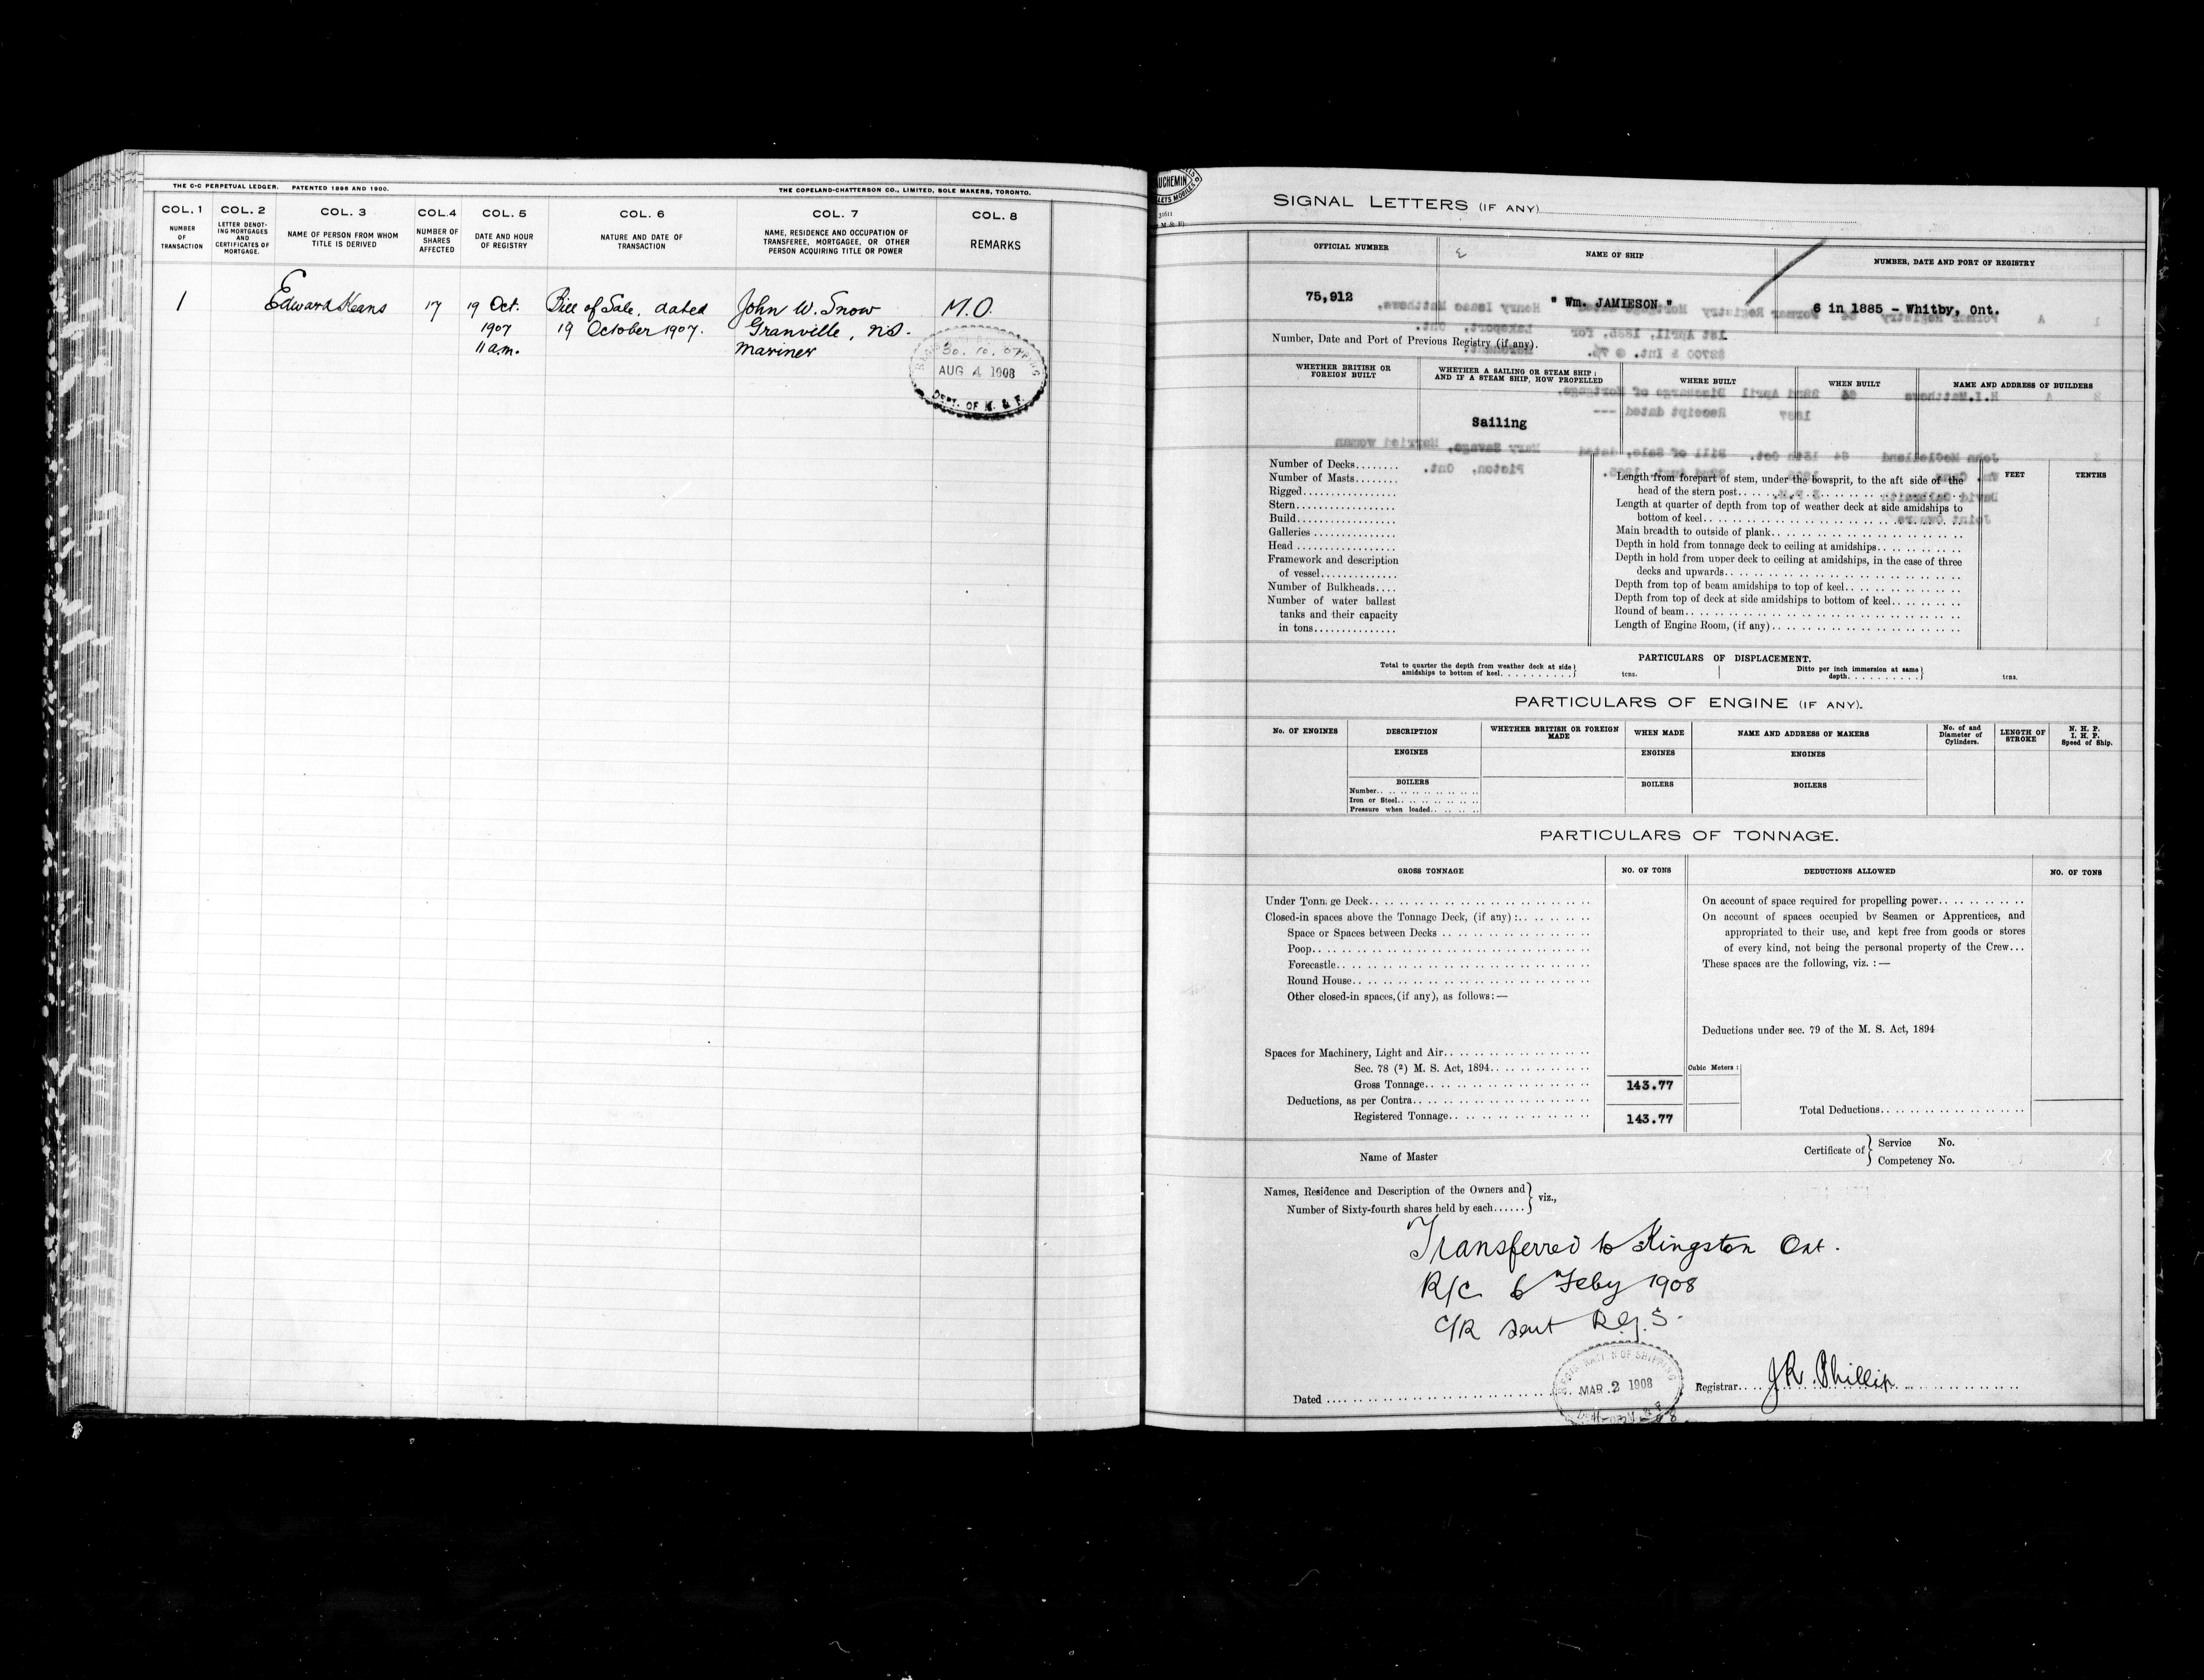 THE C-C PERPETUAL LEDGER. PATENTED 1896 AND 1900.
THE COPELAND-CHATTERSON CO., LIMITED, SOLE MAKERS, TORONTO.
COL. 1 COL. 2 COL. 3 COL.4 COL. 5 COL. 6 COL. 7 COL. 8
NUMBER OF TRANSACTION
LETTER DENOTING MORTGAGES AND CERTIFICATES OF MORTGAGE.
NAME OF PERSON FROM WHOM TITLE IS DERIVED
NUMBER OF SHARES AFFECTED
DATE AND HOUR OF REGISTRY
NATURE AND DATE OF TRANSACTION
NAME, RESIDENCE AND OCCUPATION OF TRANSFEREE, MORTGAGEE, OR OTHER PERSON ACQUIRING TITLE OR POWER
REMARKS
1 Edward Keans 17 19 Oct. Bill of Sale, dated John W. Snow M.O.
1907 19 October 1907. Granville, NS.
11 a.m. Mariner
30.10.07
AUG 4 1908
DEPT. OF M. & F.
SIGNAL LETTERS (IF ANY)
OFFICIAL NUMBER NAME OF SHIP NUMBER, DATE AND PORT OF REGISTRY
75,912 " Wm. JAMIESON " 6 in 1885 - Whitby, Ont.
Number, Date and Port of Previous Registry (if any).
WHETHER BRITISH OR FOREIGN BUILT
WHETHER A SAILING OR STEAM SHIP; AND IF A STEAM SHIP, HOW PROPELLED
WHERE BUILT
WHEN BUILT
NAME AND ADDRESS OF BUILDERS
Sailing
Number of Decks
Number of Masts
Rigged
Stern
Build
Galleries
Head
Framework and description
of vessel
Number of Bulkheads
Number of water ballast
tanks and their capacity
in tons
FEET TENTHS
Length from forepart of stem, under the bowsprit, to the aft side of the
head of the stern post
Length at quarter of depth from top of weather deck at side amidships to
bottom of keel
Main breadth to outside of plank
Depth in hold from tonnage deck to ceiling at amidships
Depth in hold from upper deck to ceiling at amidships, in the case of three
decks and upwards
Depth from top of beam amidships to top of keel
Depth from top of deck at side amidships to bottom of keel
Round of beam
Length of Engine Room, (if any)
PARTICULARS OF DISPLACEMENT.
Total to quarter the depth from weather deck at side amidships to bottom of keel tons.
Ditto per inch immersion at same depth tons.
PARTICULARS OF ENGINE (IF ANY).
No. OF ENGINES DESCRIPTION WHETHER BRITISH OR FOREIGN MADE WHEN MADE NAME AND ADDRESS OF MAKERS No. of and Diameter of Cylinders. LENGTH OF STROKE N. H. P. I. H. P. Speed of Ship.
ENGINES ENGINES ENGINES
BOILERS BOILERS BOILERS
Number
Iron or Steel
Pressure when loaded
PARTICULARS OF TONNAGE.
GROSS TONNAGE NO. OF TONS DEDUCTIONS ALLOWED NO. OF TONS
Under Tonnage Deck
Closed-in spaces above the Tonnage Deck, (if any) :
Space or Spaces between Decks
Poop
Forecastle
Round House
Other closed-in spaces, (if any), as follows: —
Spaces for Machinery, Light and Air
Sec. 78 (2) M. S. Act, 1894
Gross Tonnage 143.77
Deductions, as per Contra
Registered Tonnage 143.77
On account of space required for propelling power
On account of spaces occupied by Seamen or Apprentices, and
appropriated to their use, and kept free from goods or stores
of every kind, not being the personal property of the Crew
These spaces are the following, viz. : —
Deductions under sec. 79 of the M. S. Act, 1894
Cubic Meters :
Total Deductions
Name of Master
Certificate of Service No.
Competency No.
Names, Residence and Description of the Owners and
Number of Sixty-fourth shares held by each viz.,
Transferred to Kingston Ont.
R/C 6 Feby 1908
C/R sent Reg. S.
MAR 2 1908
Dated Registrar J R Phillip